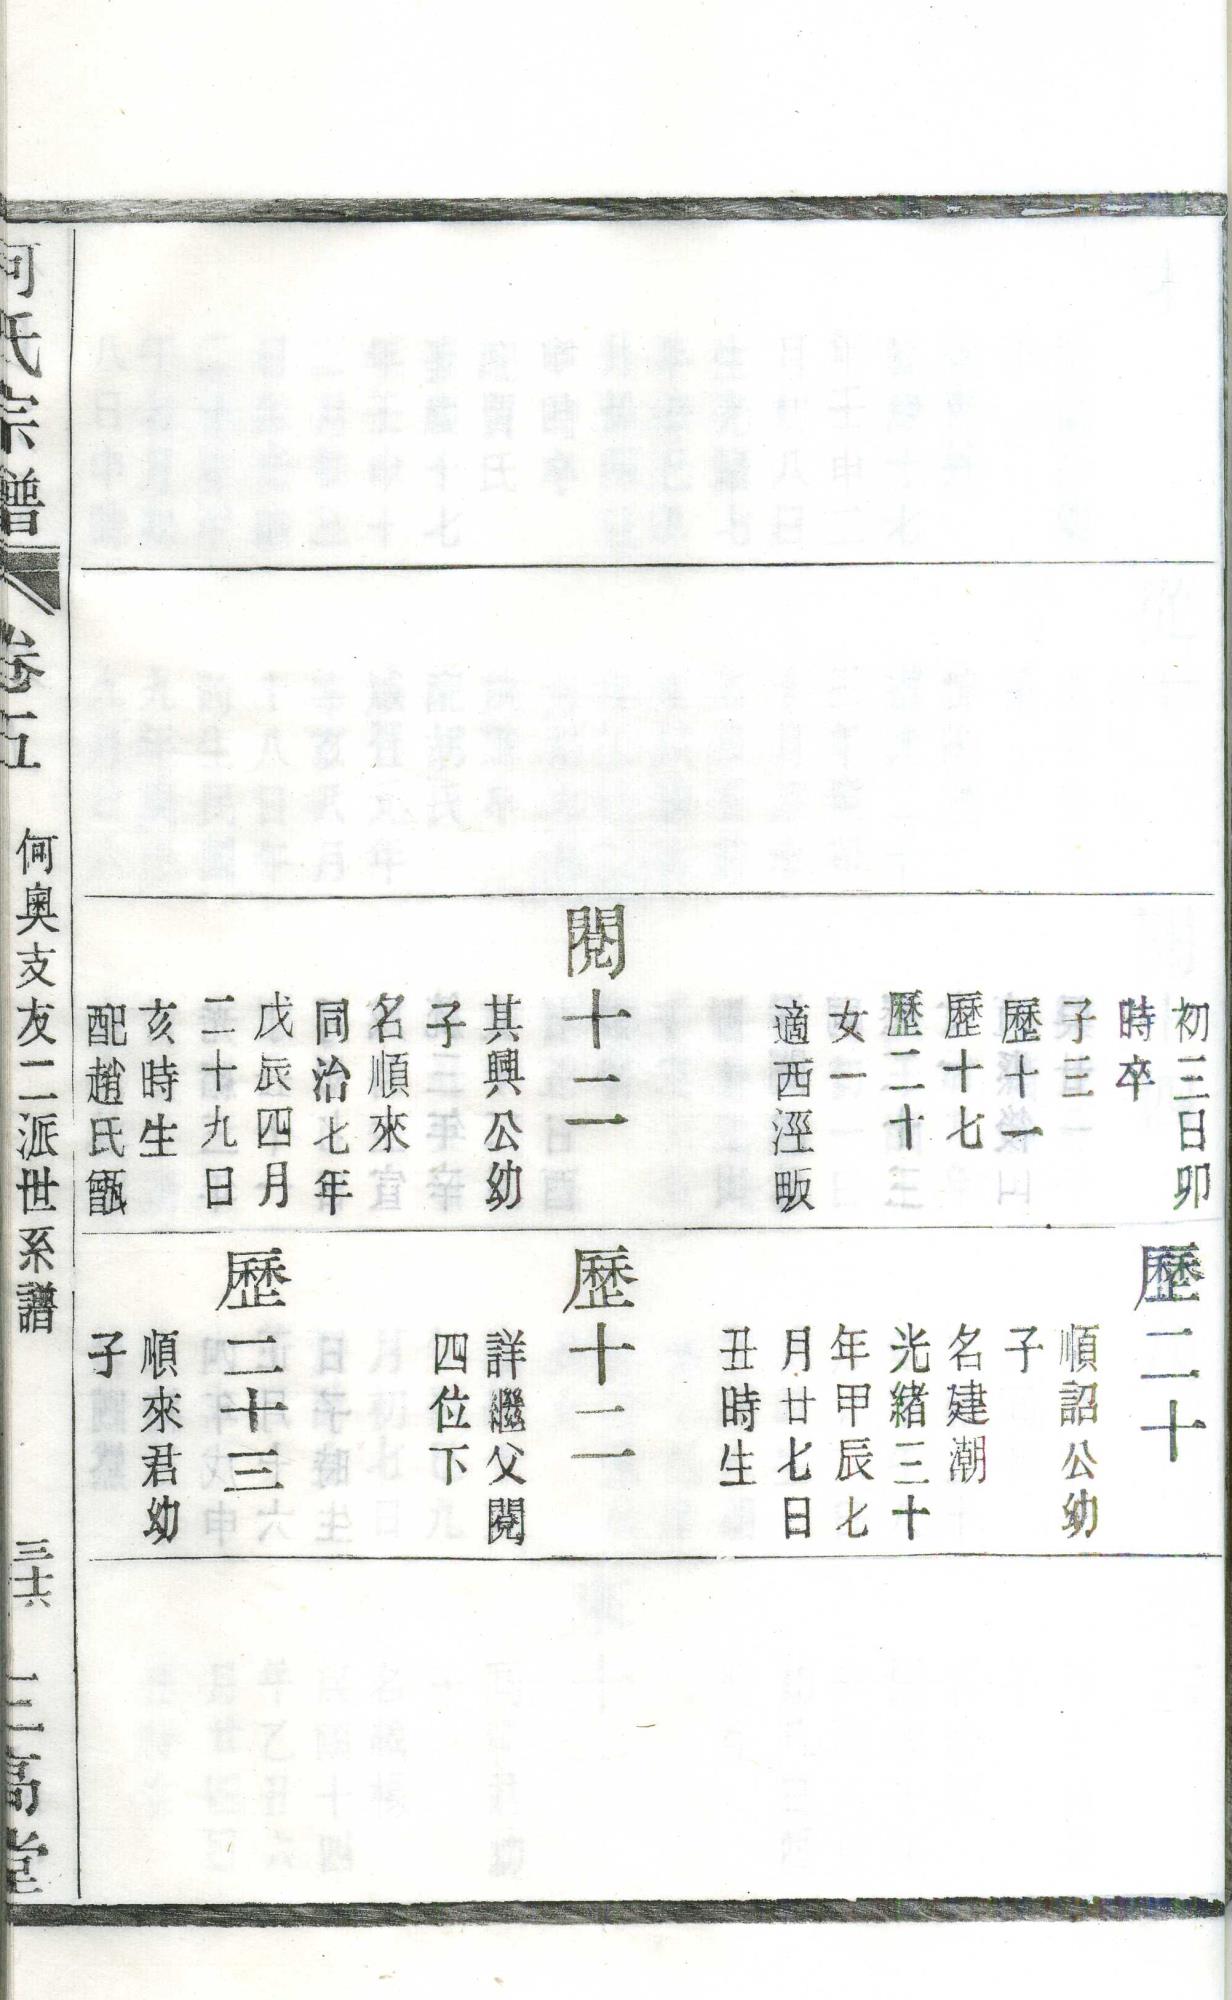 初三日卯
時卒
子三
歷十一
歷十七
歷二十
女一
適西涇畈
閱十二
其興公幼
子
名順來
同治七年
戊辰四月
二十九日
亥時生
配趙氏甑
歷二十
順詔公幼
子
名建潮
光緒三十
年甲辰七
月廿七日
丑時生
歷十二
詳繼父閱
四位下
歷二十三
順來君幼
子
何氏宗譜
卷五
何奥支友二派世系譜
三十六
三高堂